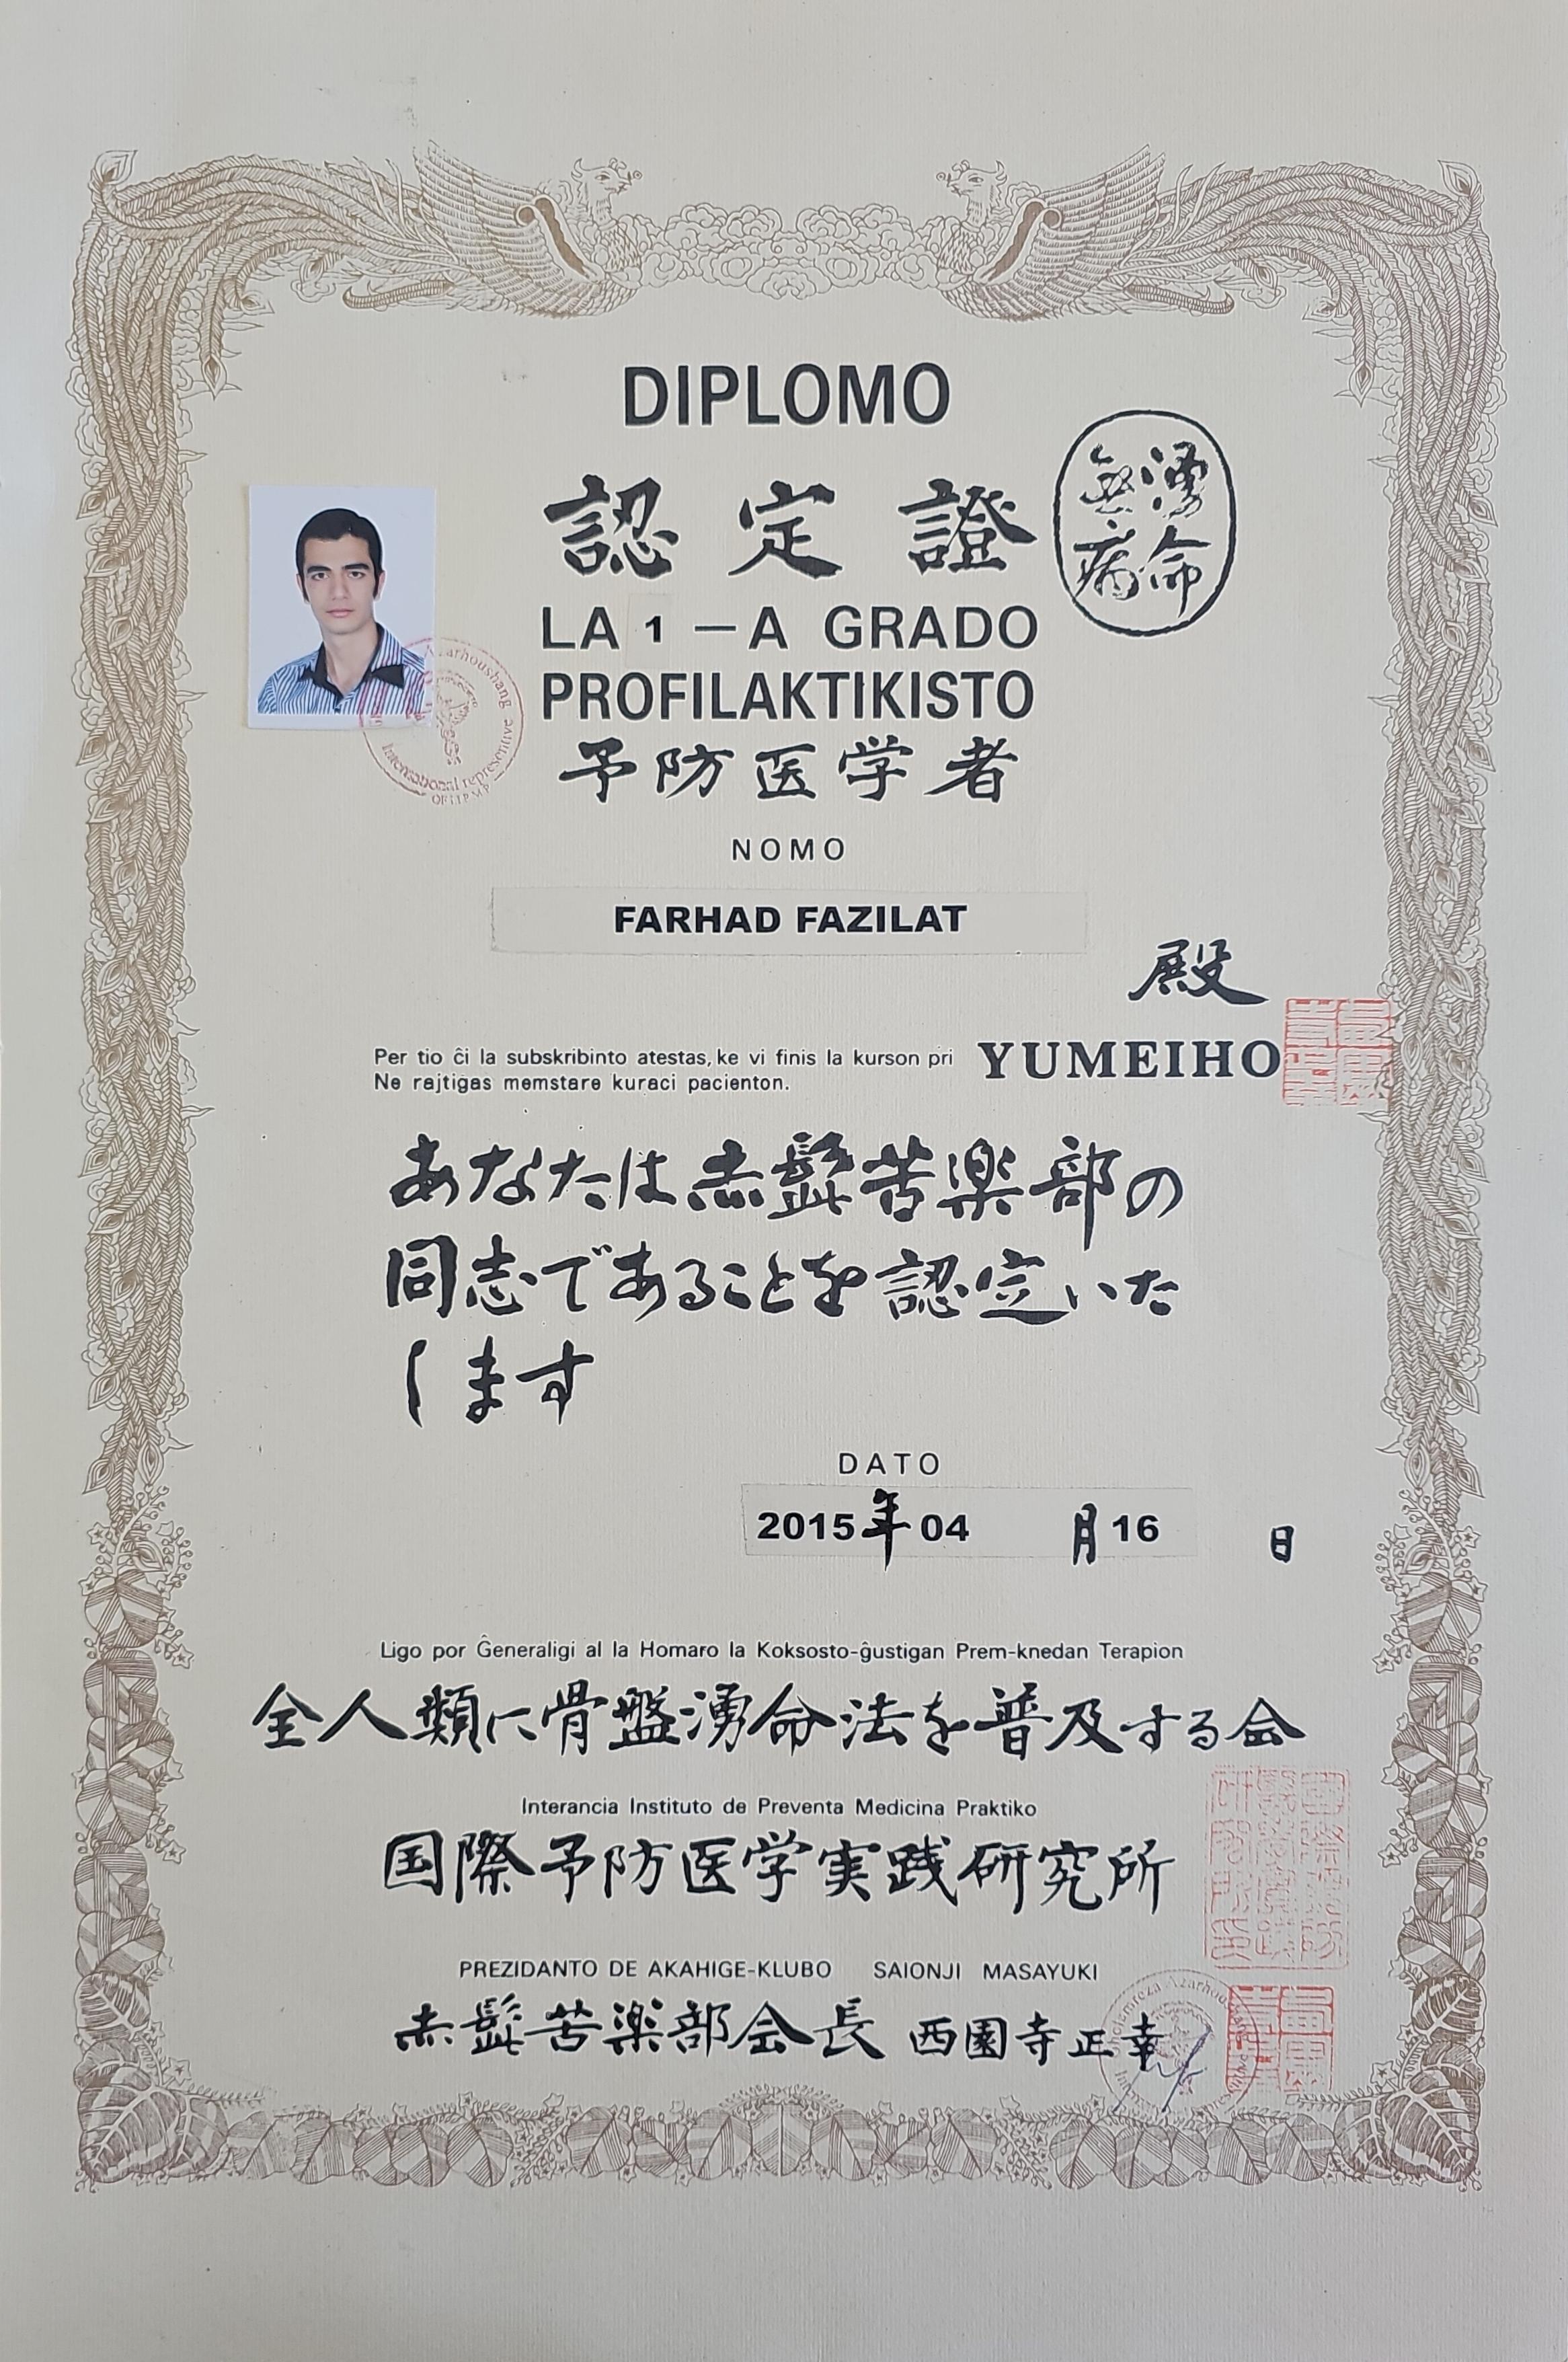 DIPLOMO
認定證
湧命
無病
LA 1 — A GRADO
PROFILAKTIKISTO
予防医学者
Azarhoushang
International representive
OF I.I.P.M.P
NOMO
FARHAD FAZILAT
殿
Per tio ĉi la subskribinto atestas, ke vi finis la kurson pri YUMEIHO
Ne rajtigas memstare kuraci pacienton.
あなたは赤髭苦楽部の
同志であることを認定いた
します
DATO
2015年04月16日
Ligo por Ĝeneraligi al la Homaro la Koksosto-ĝustigan Prem-knedan Terapion
全人類に骨盤湧命法を普及する会
Interancia Instituto de Preventa Medicina Praktiko
国際予防医学実践研究所
PREZIDANTO DE AKAHIGE-KLUBO SAIONJI MASAYUKI
赤髭苦楽部会長 西園寺正幸